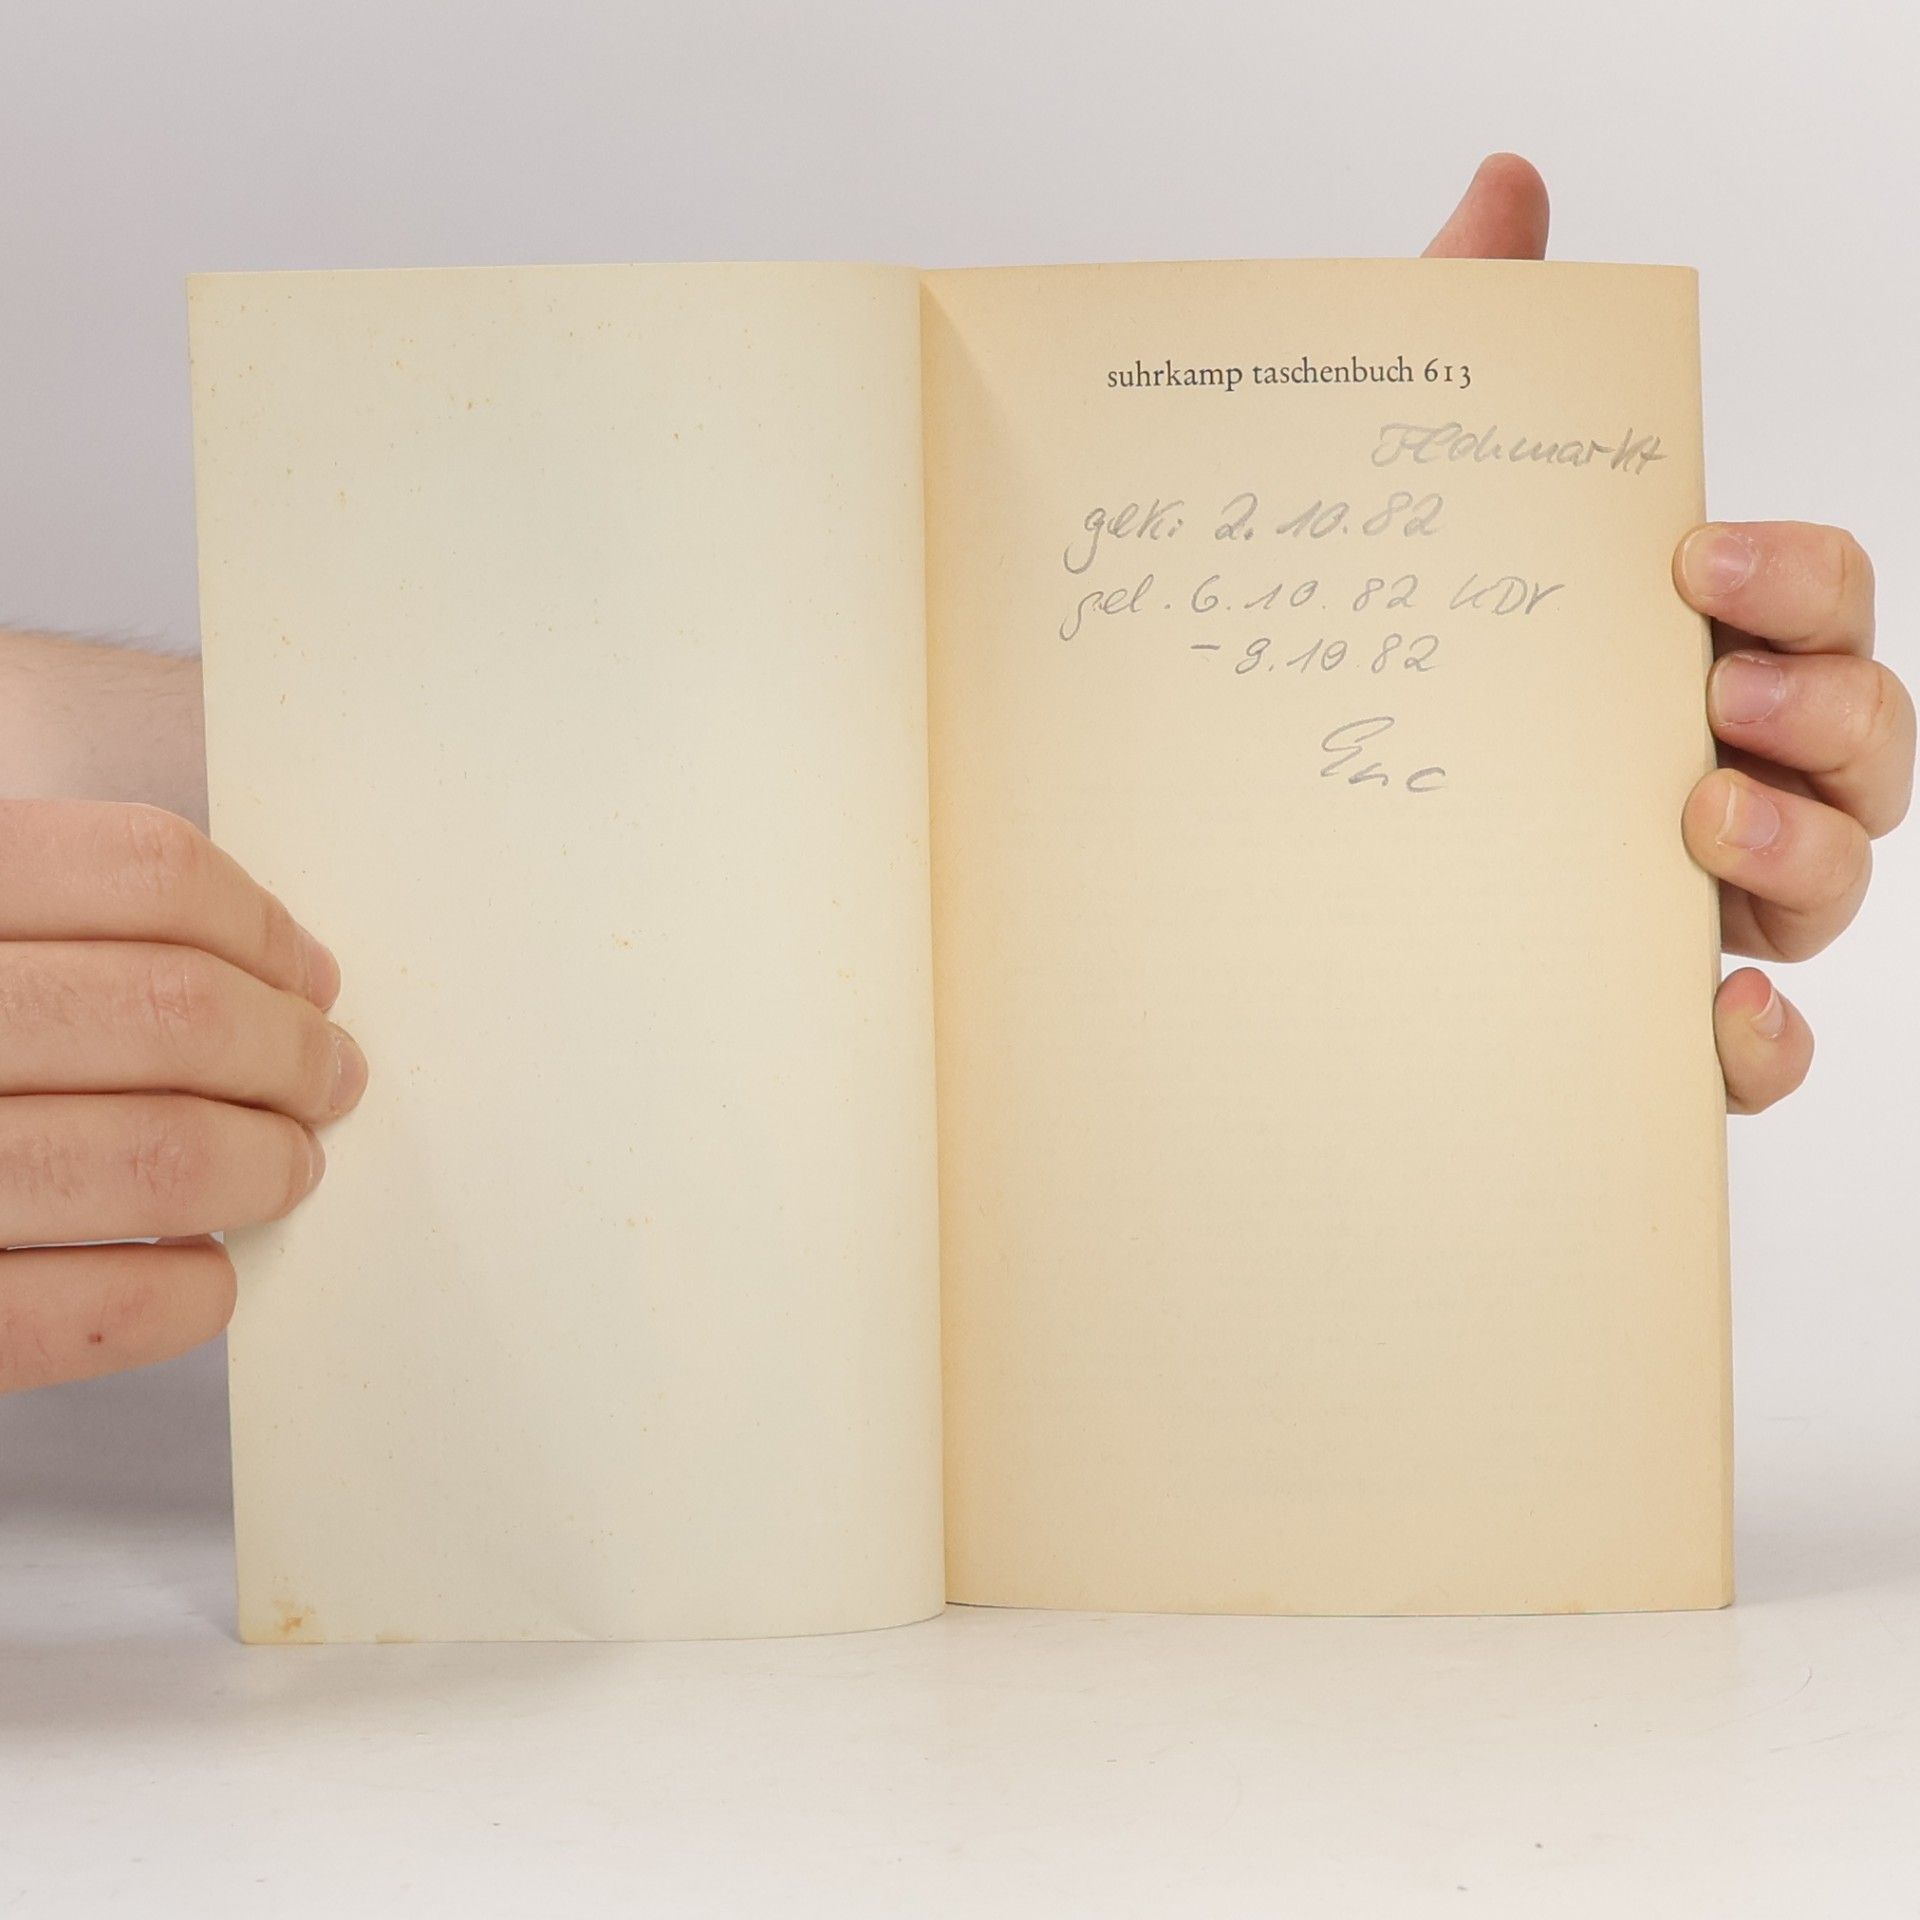 suhrkamp taschenbuch 613
Flohmarkt
gek. 2.10.82
gel. 6.10.82 KDr
- 9.10.82